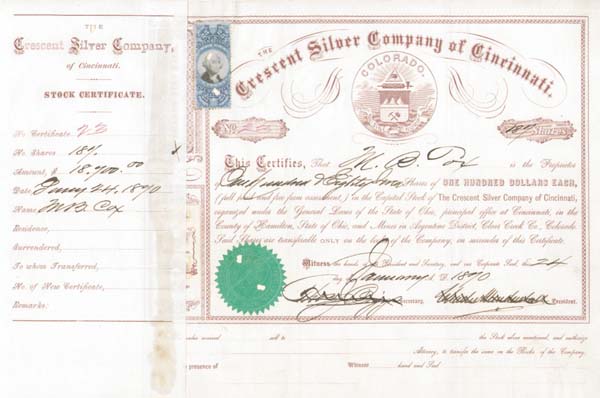 THE
Crescent Silver Company,
of Cincinnati.
STOCK CERTIFICATE.
No. Certificate, 22
No. Shares 187
Amount, $ 18,700.00
Date Jany 24, 1870
Name M B Cox
Residence,
Surrendered,
To whom Transferred,
No. of New Certificate,
Remarks:
THE
Crescent Silver Company of Cincinnati.
COLORADO.
No. 22
187 Shares
This Certifies, That M. B. Cox is the Proprietor
of One Hundred & Eighty Seven Shares of ONE HUNDRED DOLLARS EACH,
(full paid and free from assessment,) in the Capital Stock of The Crescent Silver Company of Cincinnati,
organized under the General Laws of the State of Ohio, principal office at Cincinnati, in the
County of Hamilton, State of Ohio, and Mines in Argentine District, Clear Creek Co., Colorado.
Said Shares are transferable ONLY on the books of the Company, on surrender of this Certificate.
Witness the hands of the President and Secretary, and our Corporate Seal, the 24
day of January A. D. 1870
Secretary.
President.
value received
sell to
the Stock above mentioned, and authorize
Attorney, to transfer the same on the Books of the Company.
presence of
Witness
hand and Seal